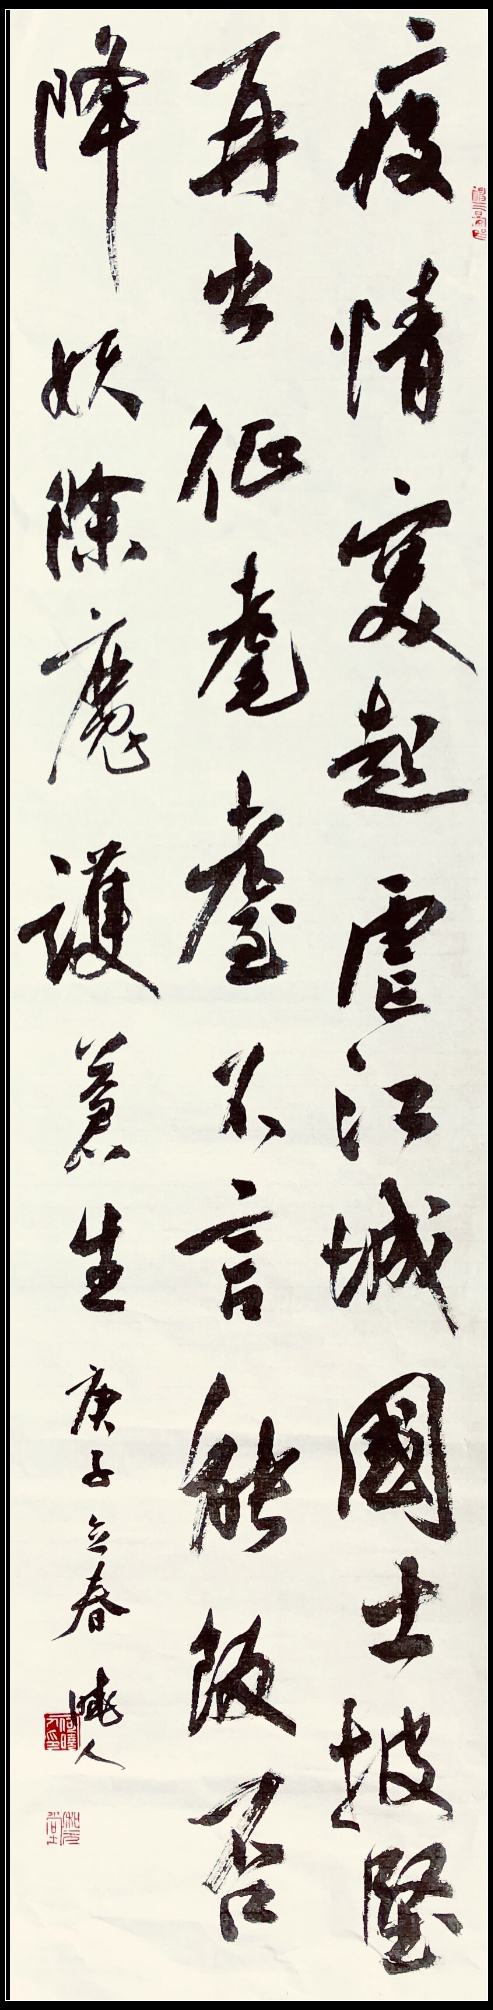 疫情突起虐江城國士披堅
再出征耄耋不言能飯否
降妖除魔護蒼生
庚子立春 曉人